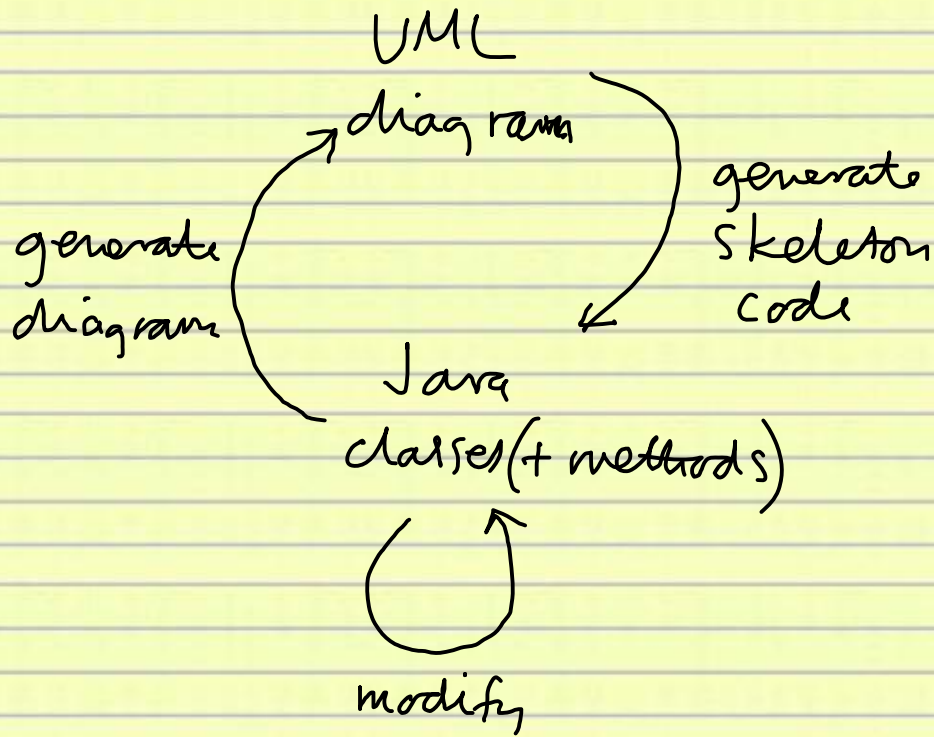 UML
diagram
generate
skeleton
code
generate
diagram
Java
classes (+ methods)
modify